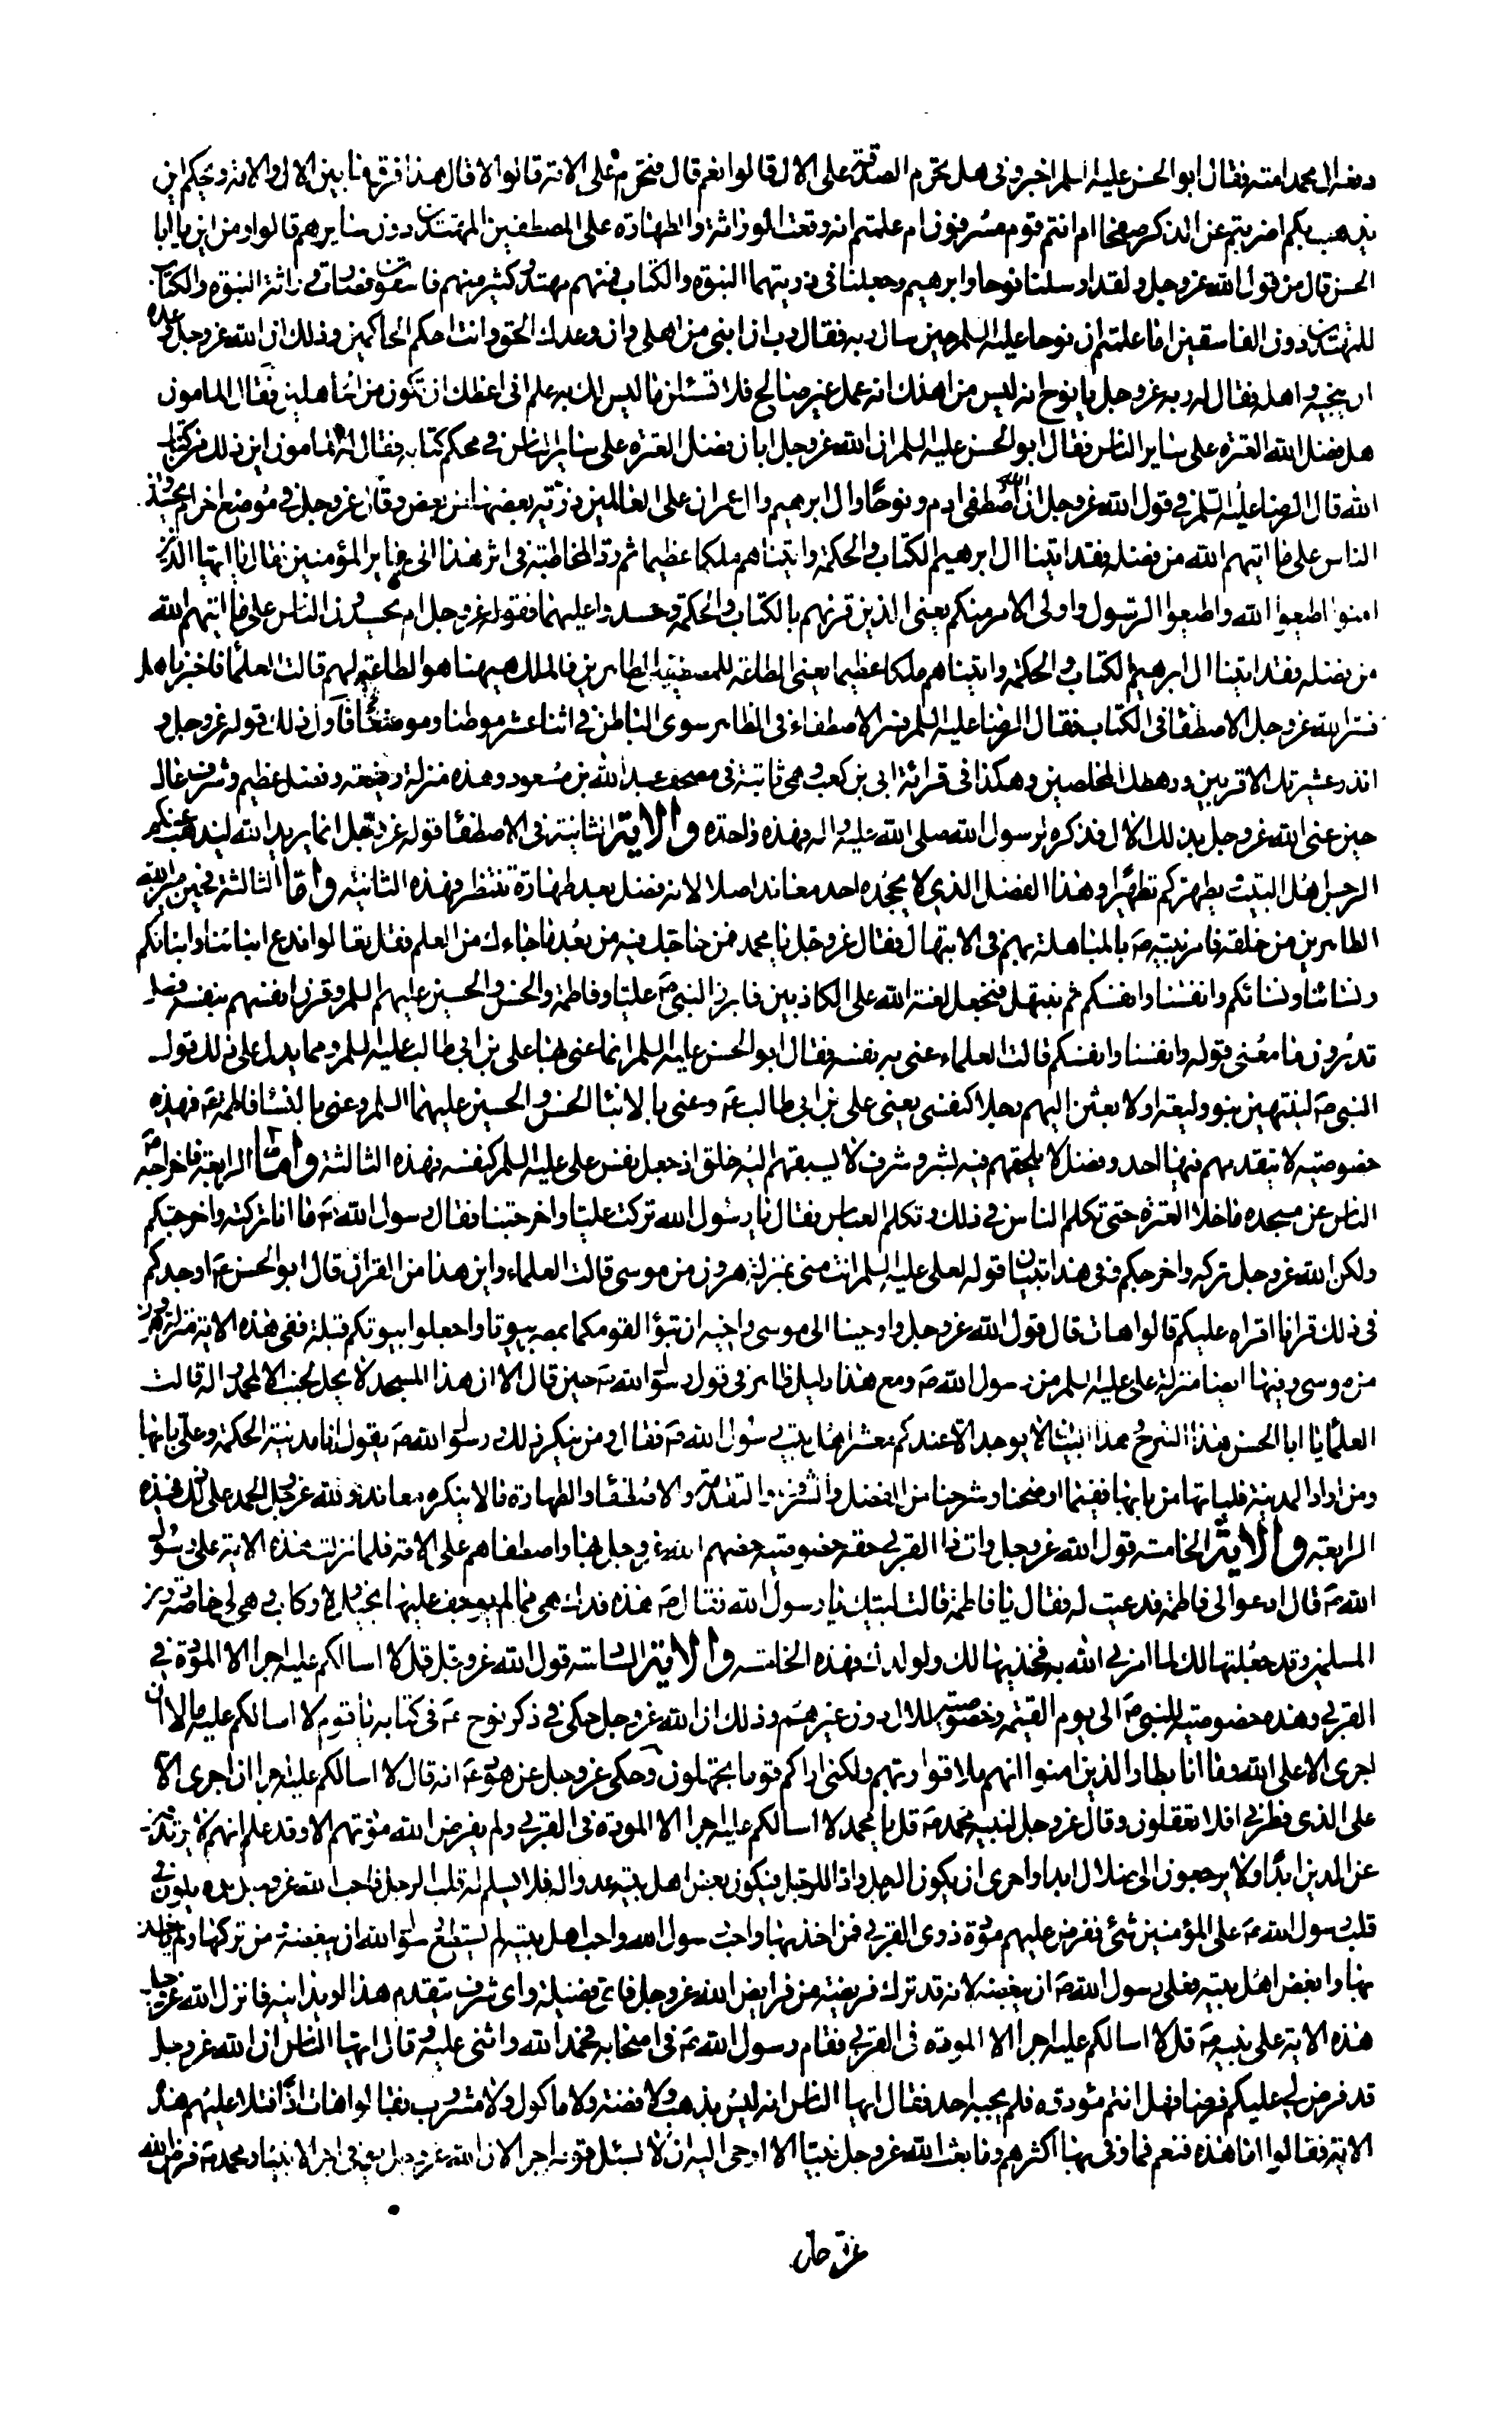 وفضل ال محمد امته فقال ابو الحسن عليه السلم اخبروني هل تحرم الصدقة على الال قالوا نعم قال فتحرم على الامة قالوا لا قال هذا فرق ما بين الال والامة ويحكم اين
يذهب بكم اضربتم عن الذكر صفحا ام انتم قوم مسرفون ام علمتم انه وقعت الوراثة والطهارة على المصطفين المهتدين دون سايرهم قالوا ومن اين يا ابا
الحسن قال من قول الله عز وجل ولقد ارسلنا نوحا وابرهيم وجعلنا في ذريتهما النبوة والكتاب فمنهم مهتد وكثير منهم فاسقون فصارت وراثة النبوة والكتاب
للمهتدين دون الفاسقين اما علمتم ان نوحا عليه السلم حين سال ربه فقال رب ان ابني من اهلي وان وعدك الحق وانت احكم الحاكمين وذلك ان الله عز وجل وعده
ان ينجيه واهله فقال له ربه عز وجل يا نوح انه ليس من اهلك انه عمل غير صالح فلا تسئلن ما ليس لك به علم اني اعظك ان تكون من الجاهلين فقال المامون
هل فضل الله العترة على ساير الناس فقال ابو الحسن عليه السلم ان الله عز وجل ابان فضل العترة على ساير الناس في محكم كتابه فقال له المامون اين ذلك من كتاب
الله قال الرضا عليه السلم في قول الله عز وجل ان الله اصطفى ادم ونوحا وال ابرهيم وال عمران على العالمين ذرية بعضها من بعض وقال عز وجل في موضع اخر ام يحسدون
الناس على ما اتيهم الله من فضله فقد اتينا ال ابرهيم الكتاب والحكمة واتيناهم ملكا عظيما ثم رد المخاطبة في اثر هذا الى ساير المؤمنين فقال يا ايها الذين
امنوا اطيعوا الله واطيعوا الرسول واولى الامر منكم يعني الذين قرنهم بالكتاب والحكمة وحسدوا عليهما فقوله عز وجل ام يحسدون الناس على ما اتيهم الله
من فضله فقد اتينا ال ابرهيم الكتاب والحكمة واتيناهم ملكا عظيما يعني الطاعة للمصطفين الطاهرين فالملك هيهنا هو الطاعة لهم قالت العلماء فاخبرنا هل
فسر الله عز وجل الاصطفاء في الكتاب فقال الرضا عليه السلم فسر الاصطفاء في الظاهر سوى الباطن في اثنا عشر موطنا وموضعا فاول ذلك قوله عز وجل و
انذر عشيرتك الاقربين ورهطك المخلصين وهكذا في قرائة ابي بن كعب وهي ثابتة في مصحف عبد الله بن مسعود وهذه منزلة رفيعة وفضل عظيم وشرف عال
حين عنى الله عز وجل بذلك الال فذكره لرسول الله صلى الله عليه واله فهذه واحدة والاية الثانية في الاصطفاء قوله عز وجل انما يريد الله ليذهب عنكم
الرجس اهل البيت ويطهركم تطهيرا وهذا الفضل الذي لا يجحده احد معاند اصلا لانه فضل بعد طهارة تنتظر فهذه الثانية واما الثالثة فحين ميز الله
الطاهرين من خلقه فامر نبيه ص بالمباهلة بهم في الابتهال فقال عز وجل يا محمد فمن حاجك فيه من بعد ما جاءك من العلم فقل تعالوا ندع ابنائنا وابنائكم
ونسائنا ونسائكم وانفسنا وانفسكم ثم نبتهل فنجعل لعنة الله على الكاذبين فابرز النبي ص عليا وفاطمة والحسن والحسين عليهم السلم وقرن انفسهم بنفسه فهل
تدرون ما معنى قوله وانفسنا وانفسكم قالت العلماء عنى به نفسه فقال ابو الحسن عليه السلم انما عنى بها علي بن ابي طالب عليه السلم ومما يدل على ذلك قول
النبي ص لينتهين بنو وليعة او لابعثن اليهم رجلا كنفسي يعني علي بن ابي طالب ع وعنى بالابناء الحسن والحسين عليهما السلم وعنى بالنساء فاطمة ع فهذه
خصوصية لا يتقدمهم فيها احد وفضل لا يلحقهم فيه بشر وشرف لا يسبقهم اليه خلق اذ جعل نفس علي عليه السلم كنفسه فهذه الثالثة واما الرابعة فاخراجه ص
الناس عن مسجده ما خلا العترة حتى تكلم الناس في ذلك وتكلم العباس فقال يا رسول الله تركت عليا واخرجتنا فقال رسول الله ص ما انا تركته واخرجتكم
ولكن الله عز وجل تركه واخرجكم وفي هذا تبيان قوله لعلي عليه السلم انت مني بمنزلة هرون من موسى قالت العلماء واين هذا من القران قال ابو الحسن ع اوجدكم
في ذلك قرانا اقراه عليكم قالوا هات قال قول الله عز وجل واوحينا الى موسى واخيه ان تبوا لقومكما بمصر بيوتا واجعلوا بيوتكم قبلة ففي هذه الاية منزلة هرون
من موسى وفيها ايضا منزلة علي عليه السلم من رسول الله ص ومع هذا دليل ظاهر في قول رسول الله ص حين قال الا ان هذا المسجد لا يحل لجنب الا لمحمد واله قالت
العلماء يا ابا الحسن هذا الشرح وهذا البيان لا يوجد الا عندكم معشر اهل بيت رسول الله ص فقال ومن ينكر لنا ذلك ورسول الله ص يقول انا مدينة الحكمة وعلي بابها
ومن اراد المدينة فلياتها من بابها ففيما اوضحنا وشرحنا من الفضل والشرف والتقدمة والاصطفاء والطهارة ما لا ينكره معاند ولله عز وجل الحمد على ذلك فهذه
الرابعة والاية الخامسة قول الله عز وجل وات ذا القربى حقه خصوصية خصهم الله عز وجل بها واصطفاهم على الامة فلما نزلت هذه الاية على رسول
الله ص قال ادعوا لي فاطمة فدعيت له فقال يا فاطمة قالت لبيك يا رسول الله فقال ص هذه فدك هي مما لم يوجف عليها بخيل ولا ركاب وهي لي خاصة دون
المسلمين وقد جعلتها لك لما امرني الله به فخذيها لك ولولدك فهذه الخامسة والاية السادسة قول الله عز وجل قل لا اسالكم عليه اجرا الا المودة في
القربى وهذه خصوصية للنبي ص الى يوم القيمة وخصوصية للال دون غيرهم وذلك ان الله عز وجل حكى في ذكر نوح ع في كتابه يا قوم لا اسالكم عليه مالا ان
اجري الا على الله وما انا بطارد الذين امنوا انهم ملاقوا ربهم ولكني اراكم قوما تجهلون وحكى عز وجل عن هود ع انه قال لا اسالكم عليه اجرا ان اجري الا
على الذي فطرني افلا تعقلون وقال عز وجل لنبيه محمد ص قل يا محمد لا اسالكم عليه اجرا الا المودة في القربى ولم يفرض الله مودتهم الا وقد علم انهم لا يرتدون
عن الدين ابدا ولا يرجعون الى ضلال ابدا واخرى ان يكون الرجل وادا للرجل فيكون بعض اهل بيته عدوا له فلا يسلم له قلب الرجل فاحب الله عز وجل ان لا يكون في
قلب رسول الله ص على المؤمنين شئ ففرض عليهم مودة ذوي القربى فمن اخذ بها واحب رسول الله واحب اهل بيته لم يستطع رسول الله ان يبغضه ومن تركها ولم ياخذ
بها وابغض اهل بيته فعلى رسول الله ص ان يبغضه لانه قد ترك فريضة من فرايض الله عز وجل فاي فضيلة واي شرف يتقدم هذا او يدانيه فانزل الله عز وجل
هذه الاية على نبيه ص قل لا اسالكم عليه اجرا الا المودة في القربى فقام رسول الله ص في اصحابه فحمد الله واثنى عليه وقال ايها الناس ان الله عز وجل
قد فرض لي عليكم فرضا فهل انتم مؤدوه فلم يجبه احد فقال ايها الناس انه ليس بذهب ولا فضة ولا ماكول ولا مشروب فقالوا هات اذا فتلا عليهم هذه
الاية فقالوا اما هذه فنعم فما وفى بها اكثرهم وما بعث الله عز وجل نبيا الا اوحى اليه ان لا يسئل قومه اجرا لان الله عز وجل يوفي اجر الانبياء ومحمد ص فرض الله
عز وجل